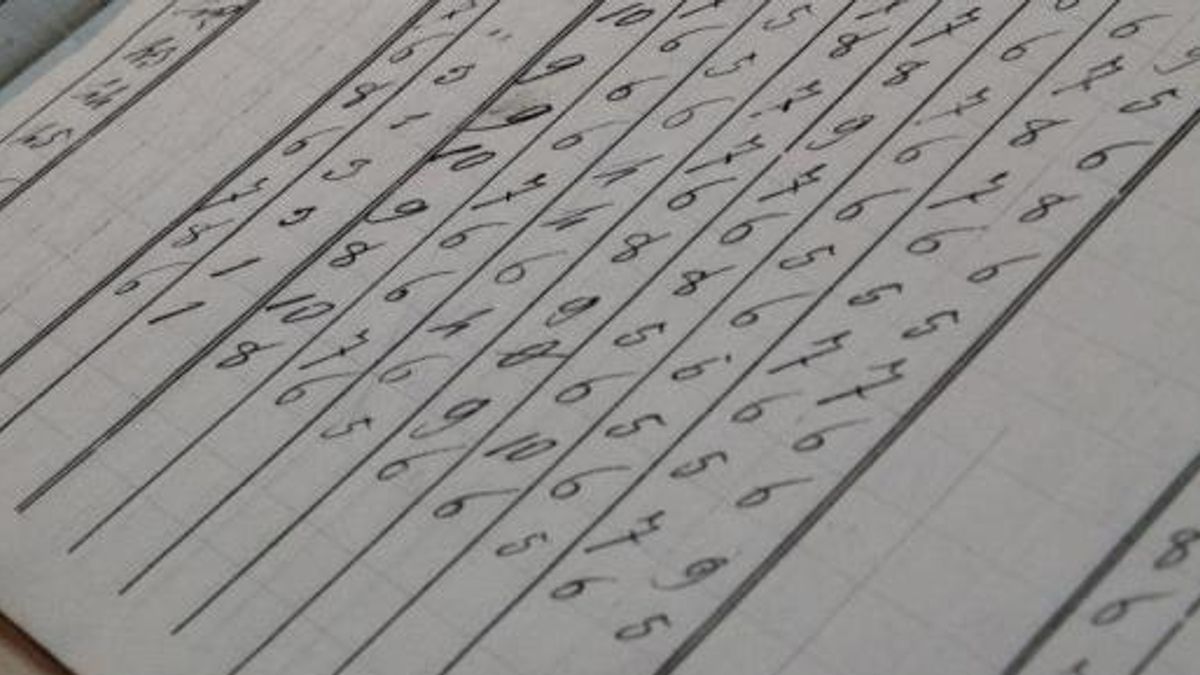 7 6 7 5
5 8 8 7 8 6
10 6 5 7 9 6 7 8
7 " 9 6 6 7 7 6 6 6
6 5 9 6 4 6 6 5 5 5
8 1 10 7 4 8 8 6 7 7
6 3 9 6 6 9 5 6 6 6
7 9 8 6 4 8 6 5 5 6
8 1 10 7 6 9 10 6 7 9
6 1 8 6 5 6 6 5 6 5
8
6